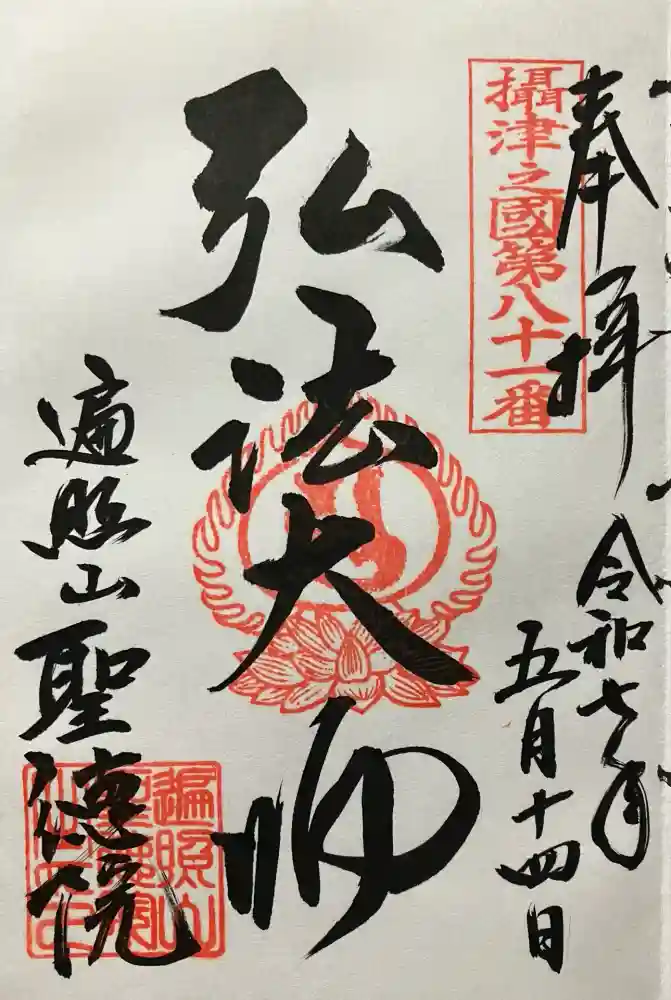 奉拝
攝津之國第八十一番
令和七年
五月十四日
弘法大師
遍照山聖徳院
遍照山
聖徳院